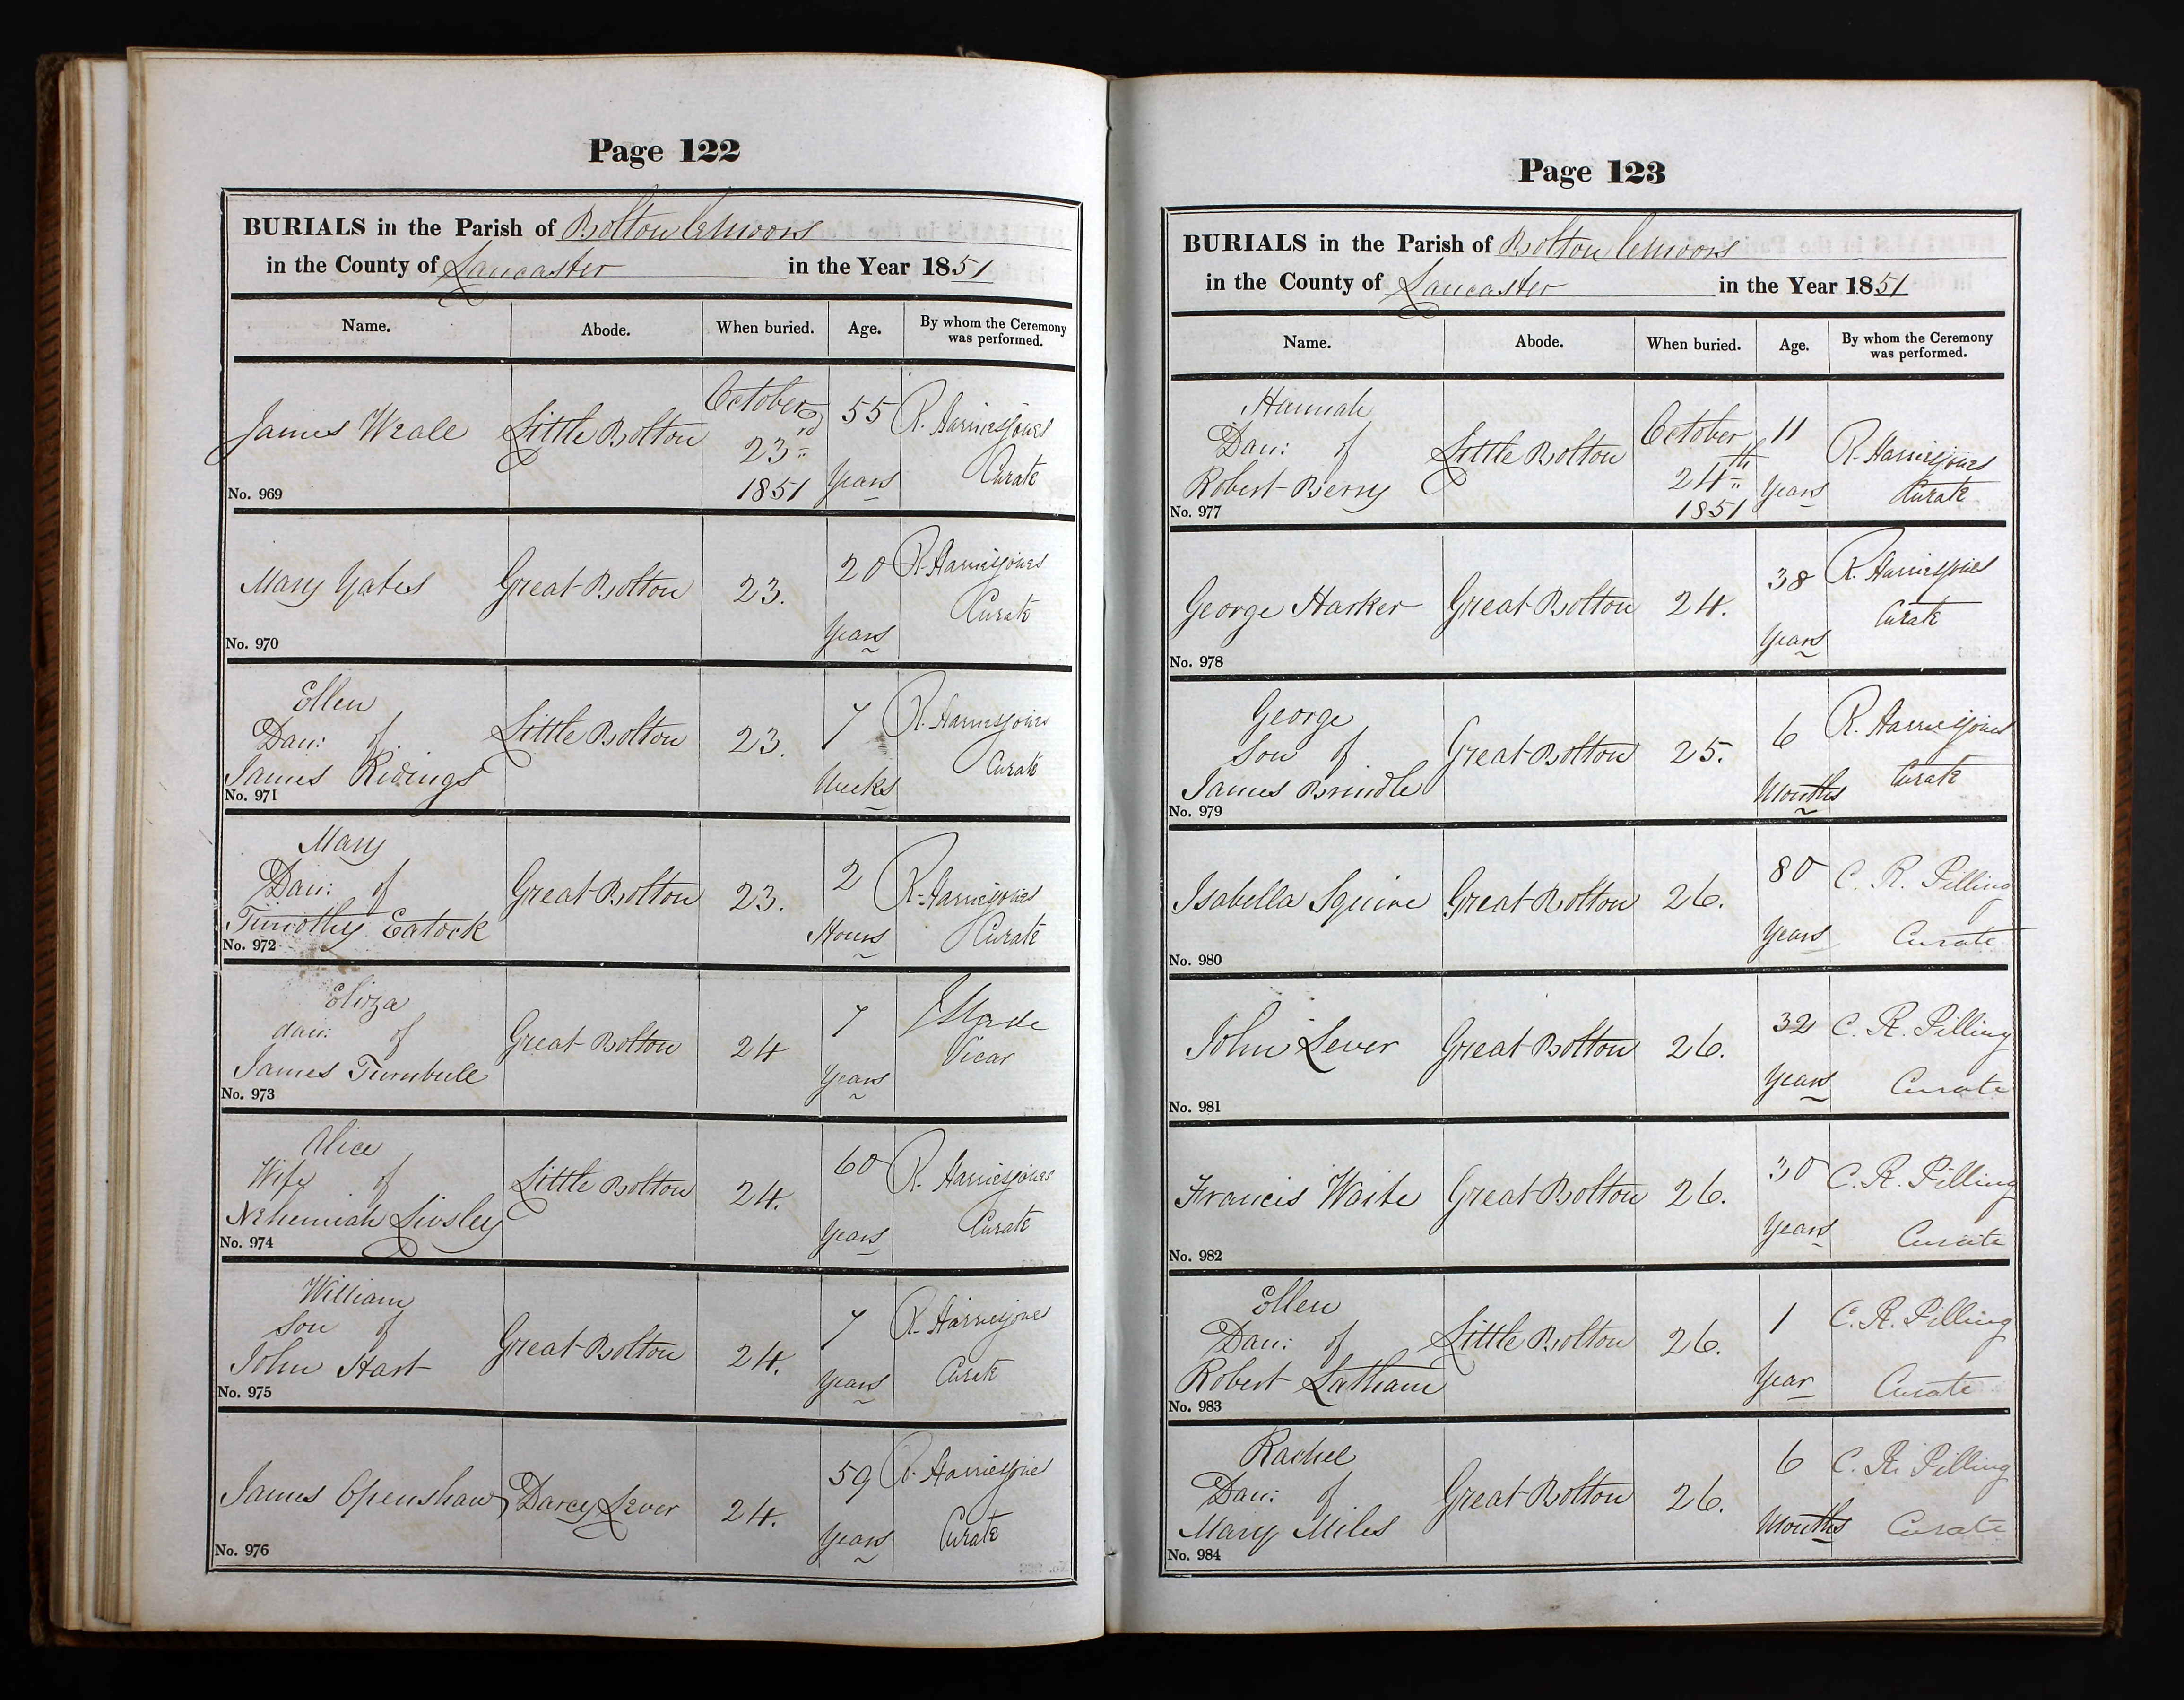 Page 122
BURIALS in the Parish of Bolton le Moors
in the County of Lancaster in the Year 1851
Name. Abode. When buried. Age. By whom the Ceremony was performed.
James Weale Little Bolton October 23rd 1851 55 Years R. Harriesjones Curate
No. 969
Mary Yates Great Bolton 23. 20 Years R. Harriesjones Curate
No. 970
Ellen
Dau: of
James Ridings Little Bolton 23. 7 Weeks R. Harriesjones Curate
No. 971
Mary
Dau: of
Timothy Eatock Great Bolton 23. 2 Hours R. Harriesjones Curate
No. 972
Eliza
dau: of
James Turnbull Great Bolton 24 7 Years J Slade Vicar
No. 973
Alice
Wife of
Nehemiah Livsley Little Bolton 24. 60 Years R. Harriesjones Curate
No. 974
William
Son of
John Hart Great Bolton 24. 7 Years R. Harriesjones Curate
No. 975
James Openshaw Darcy Lever 24. 59 Years R. Harriesjones Curate
No. 976
Page 123
BURIALS in the Parish of Bolton le Moors
in the County of Lancaster in the Year 1851
Name. Abode. When buried. Age. By whom the Ceremony was performed.
Hannah
Dau: of
Robert Berry Little Bolton October 24th 1851 11 Years R. Harriesjones Curate
No. 977
George Harker Great Bolton 24. 38 Years R. Harriesjones Curate
No. 978
George
Son of
James Brindle Great Bolton 25. 6 Months R. Harriesjones Curate
No. 979
Isabella Squire Great Bolton 26. 80 Years C. R. Pilling Curate
No. 980
John Lever Great Bolton 26. 32 Years C. R. Pilling Curate
No. 981
Francis Waite Great Bolton 26. 30 Years C. R. Pilling Curate
No. 982
Ellen
Dau: of
Robert Latham Little Bolton 26. 1 Year C. R. Pilling Curate
No. 983
Rachel
Dau: of
Mary Miles Great Bolton 26. 6 Months C. R. Pilling Curate
No. 984